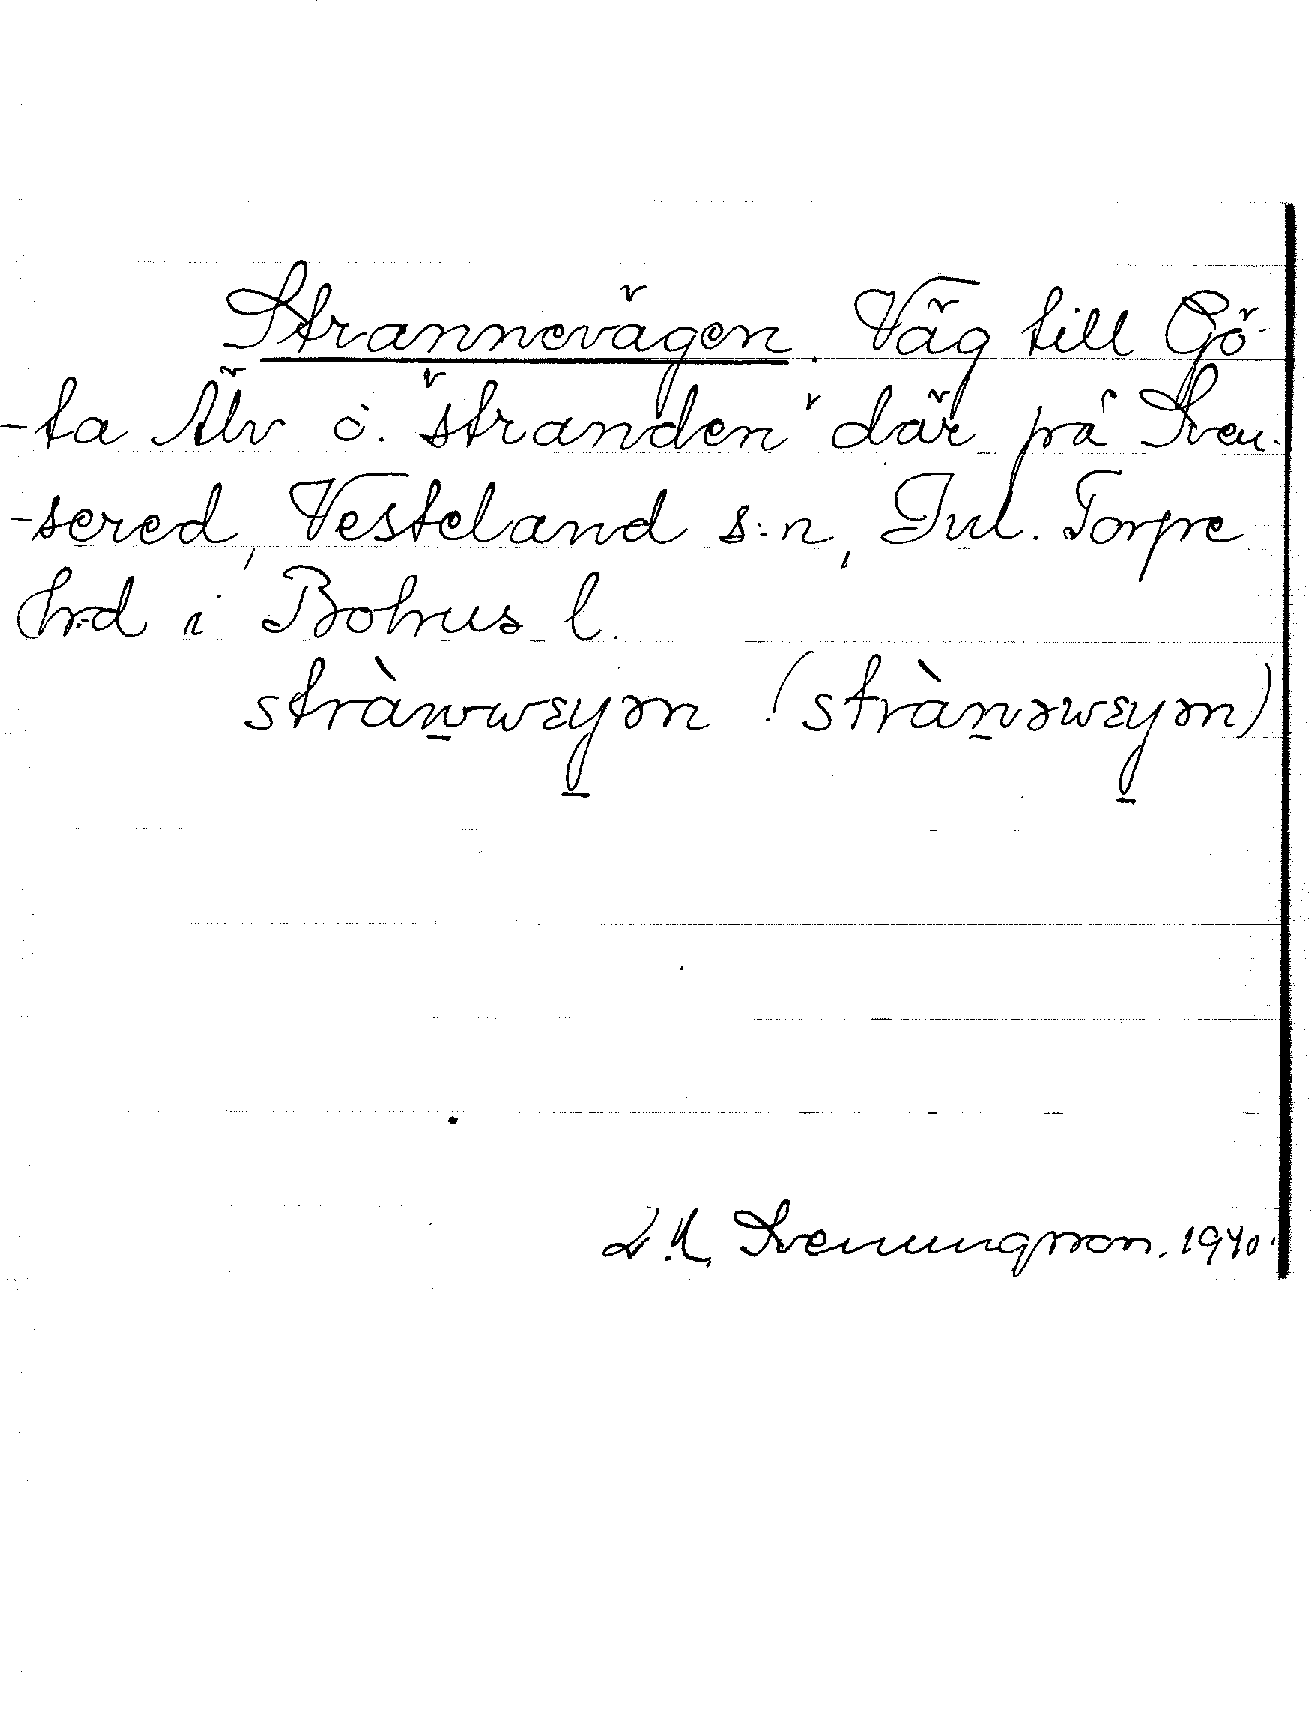 Strannevägen. Väg till Gö-
-ta Älv o. "stranden" där på Sven-
-sered, Vesteland s:n, Inl. Torpe
hrd i Bohus l.
stràn̲wεy̲ən (stràn̲əwεy̲ən)
D. A. Svenungsson. 1940.